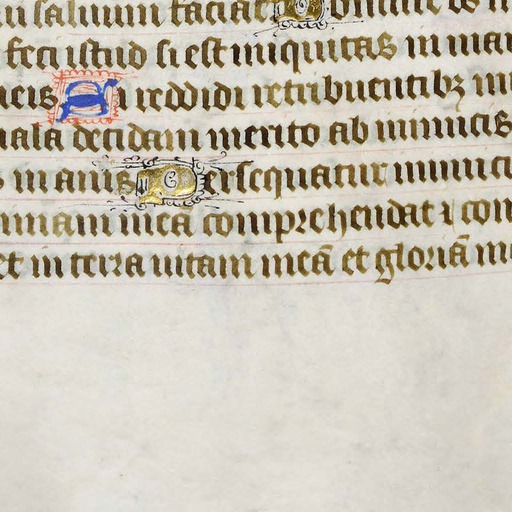 saluum faciat Domine
feci istud si est iniquitas in ma
Si reddidi retribuentibꝫ
decidam merito ab inimicis
inanis Persequatur inimic
meā comprehendat ⁊ con
et in terra uitam meā et gloriā m